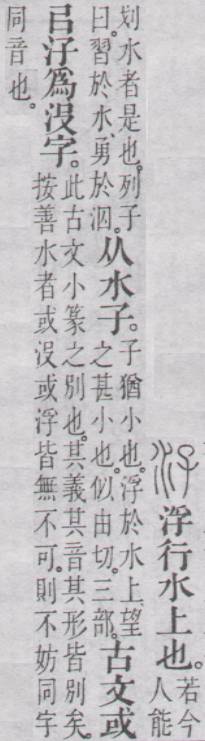 汓浮行水上也。若今人能
划水者是也。列子曰。習於水、勇於泅。从水子。子猶小也。浮於水上、望之甚小也。似由切。三部。古文或
㠯汓爲沒字。此古文小篆之別也。其義其音其形皆別矣。按善水者或沒或浮皆無不可。則不妨同字
同音也。